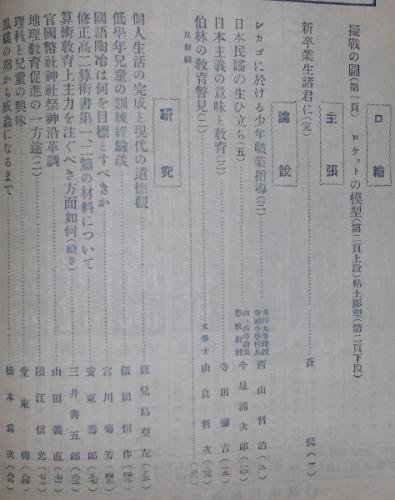 口繪
擬戰の圖(第一頁) ロケットの模型(第二頁上段)粘土彫塑(第二頁下段)
主張
新卒業生諸君に(完) 蒼 (一)
論說
シカゴに於ける少年職業指導(三) 西山哲治(二)
日本民謠の生ひ立ち(五) 山口高等商業學校敎授 今泉浦次郎
日本主義の意味と敎育(二) 寺田彌吉
伯林の敎育瞥見(二) 文學士 由良哲次
反射鏡
硏究
個人生活の完成と現代の道德觀 鹿兒島登左
低學年兒童の訓練經驗談 飯田恒作
國語陶冶は何を目標とすべきか 宮川菊芳
修正高二算術書第一、二篇の材料について 安東壽郎
算術敎育上主力を注ぐべき方面如何(續き) 三井善五郎
官國幣社神社祭神沿革調 山田義直
地理敎育促進の一方途(二) 隈江信光
理科と兒童の興味 堂東傳
鳳蝶の卵から成蟲になるまで 橋本爲次